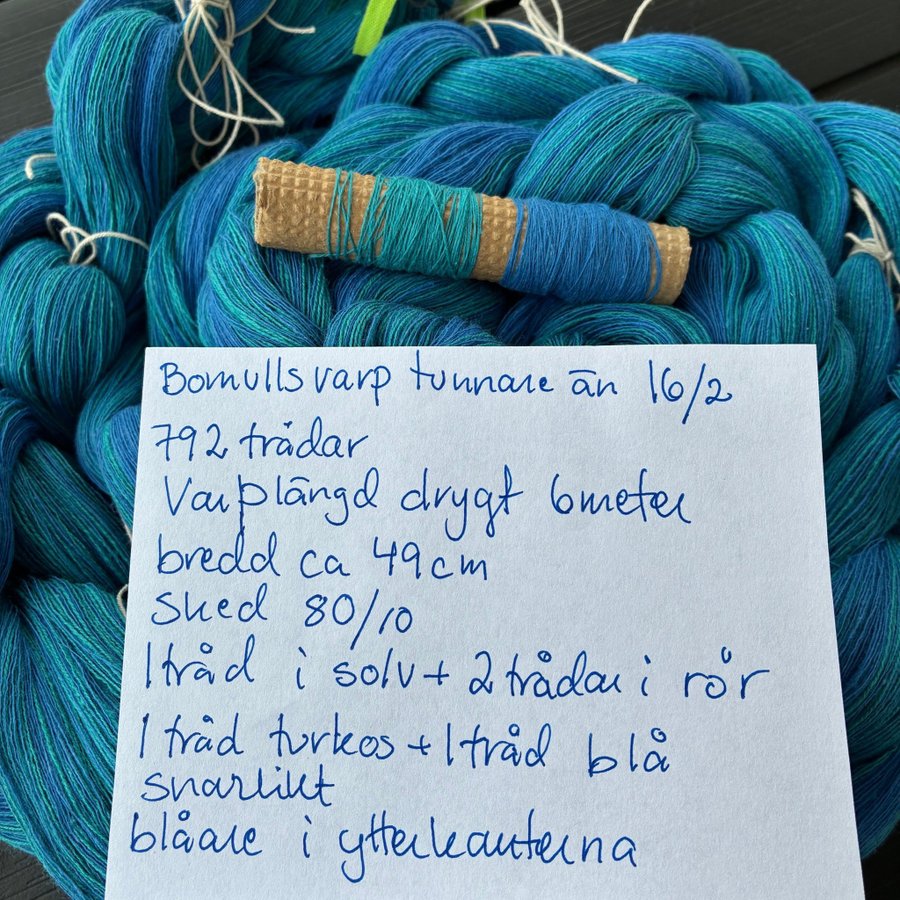 Bomullsvarp tunnare än 16/2
792 trådar
Varplängd drygt 6meter
bredd ca 49cm
Sked 80/10
1tråd i solv+2trådar i rör
1tråd turkos+1tråd blå
snarlikt
blåare i ytterkanterna